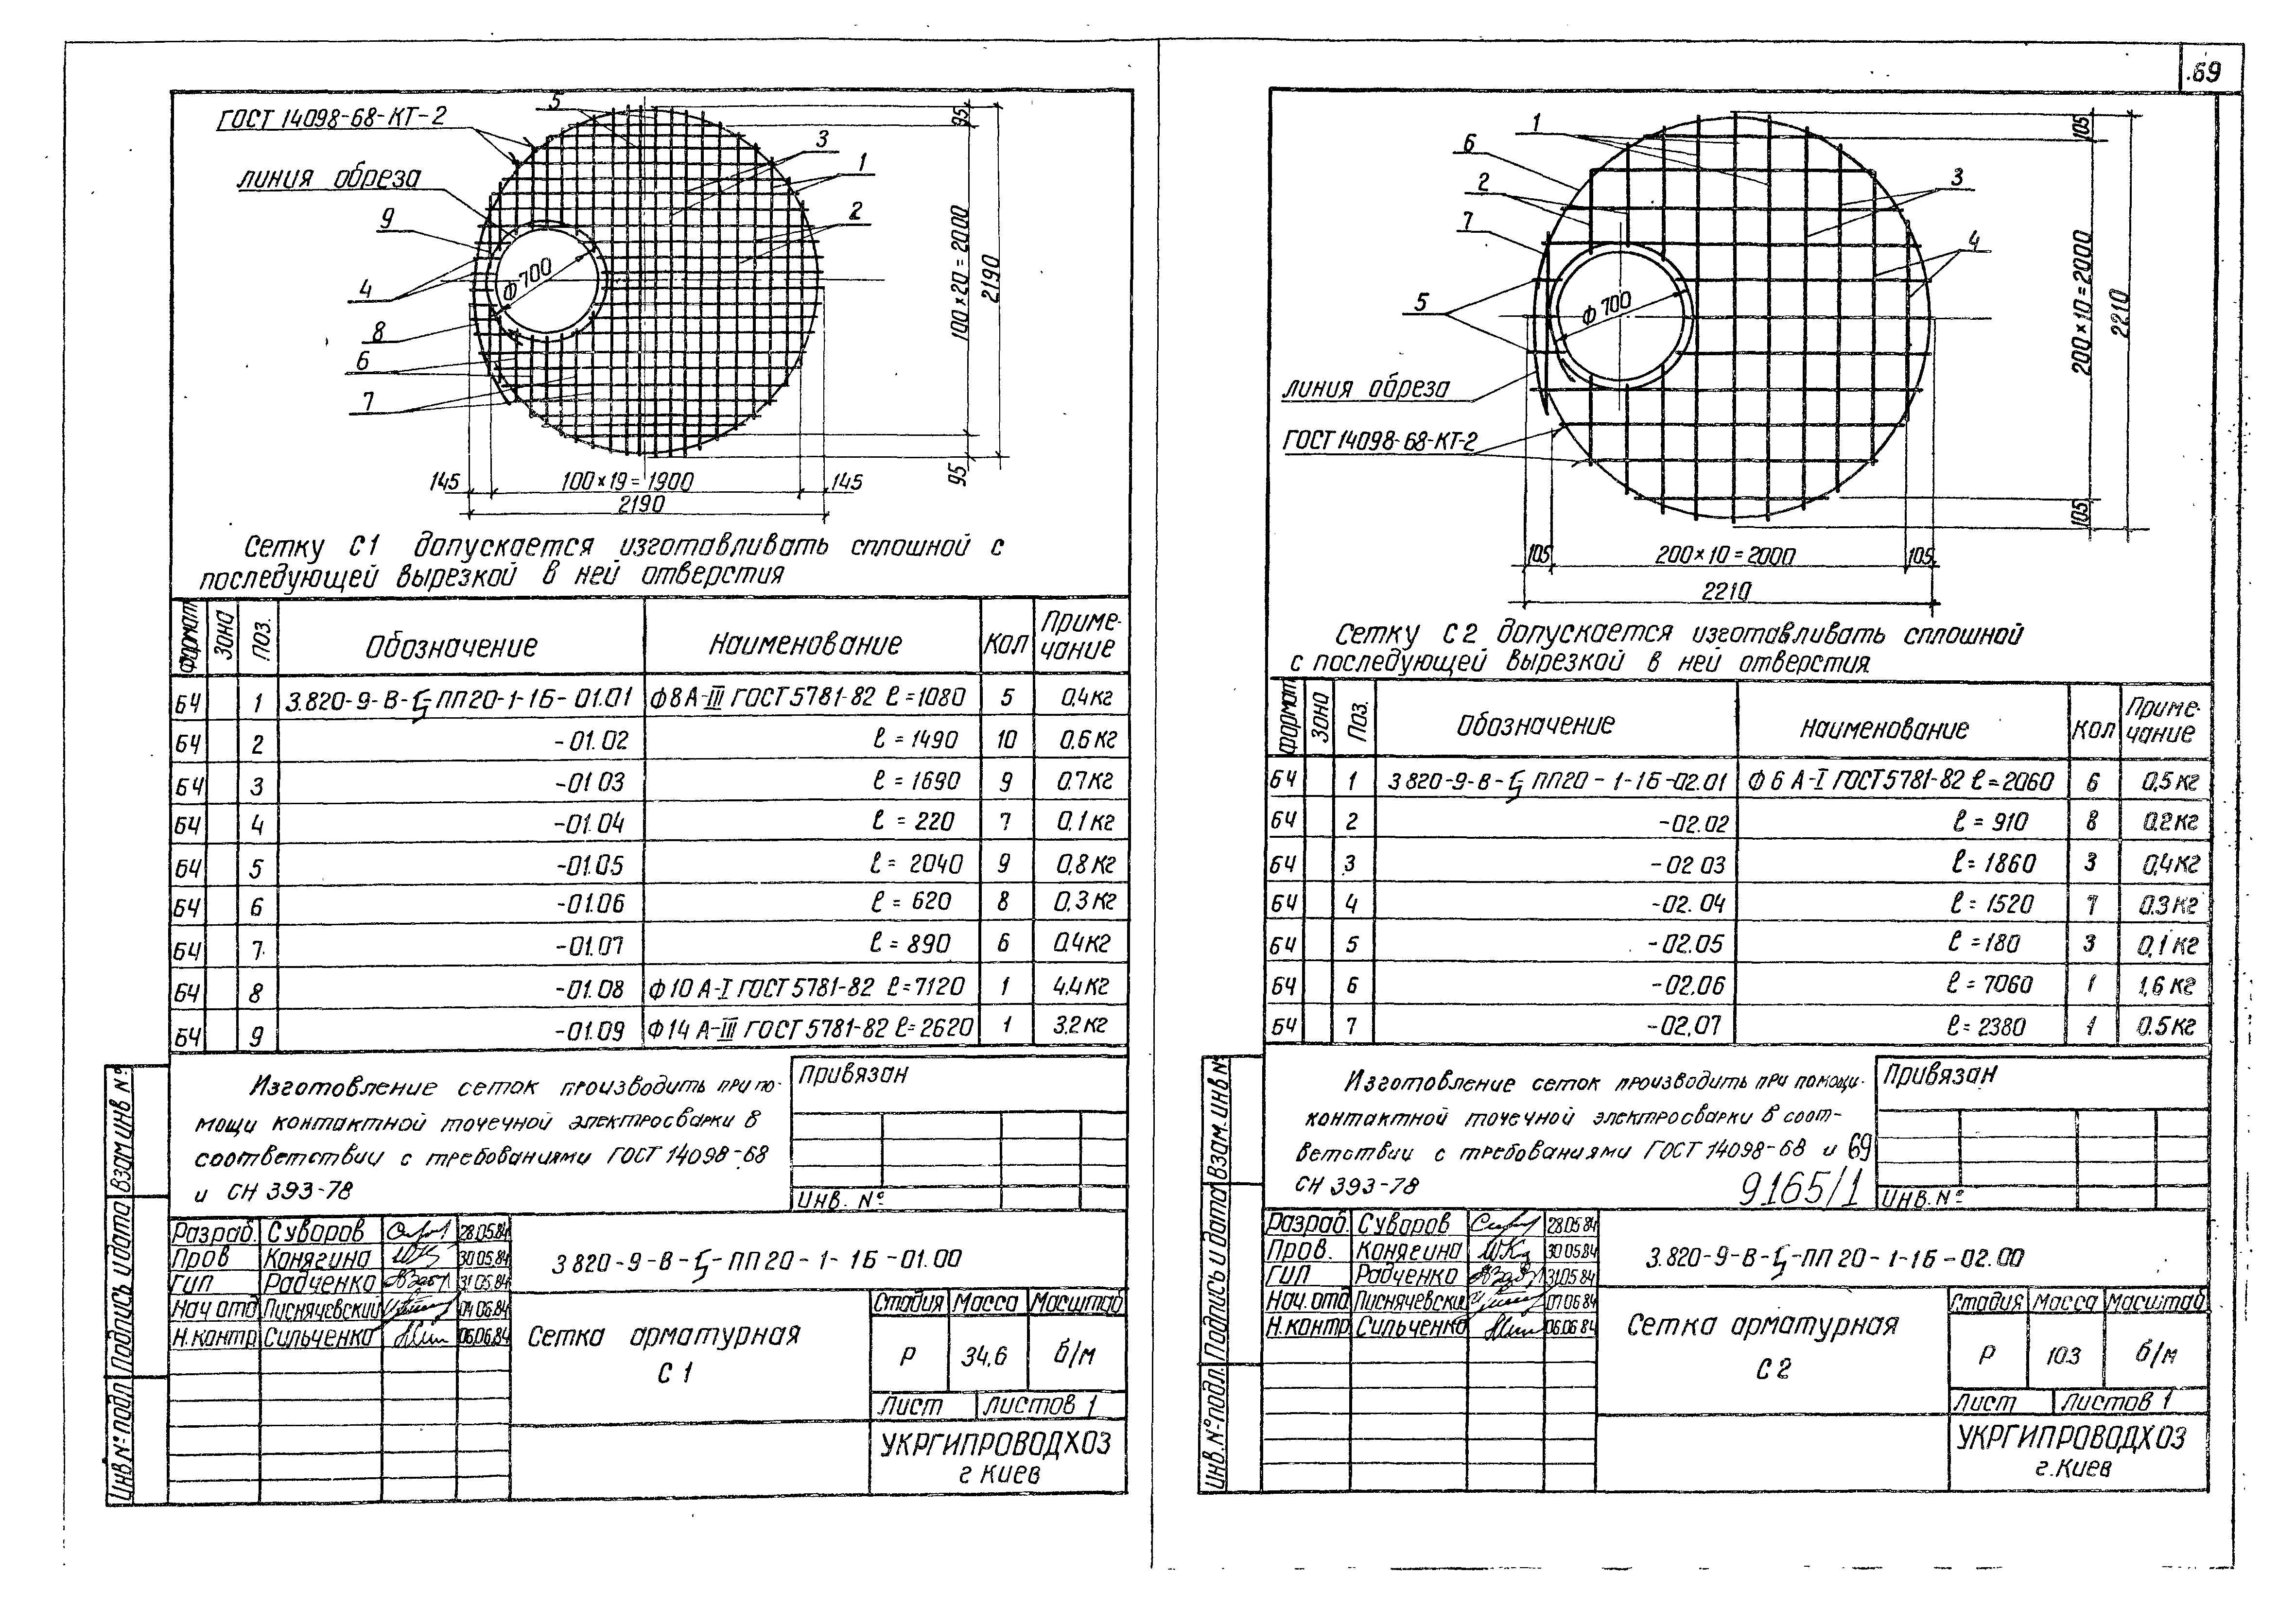 69
ГОСТ 14098-68-КТ-2
линия обреза
5
3
1
2
9
4
8
6
7
Ф 700
95
100×20=2000
2190
95
145
100×19=1900
145
2190
Сетку С1 допускается изготавливать сплошной с
последующей вырезкой в ней отверстия
Формат Зона Поз. Обозначение Наименование Кол Приме-
чание
БЧ 1 3.820-9-В-Ц-ПП20-1-1Б-01.01 Ф8А-III ГОСТ 5781-82 ℓ=1080 5 0,4кг
БЧ 2 -01.02 ℓ=1490 10 0.6кг
БЧ 3 -01 03 ℓ=1690 9 0.7кг
БЧ 4 -01.04 ℓ=220 7 0.1кг
БЧ 5 -01.05 ℓ=2040 9 0,8кг
БЧ 6 -01.06 ℓ=620 8 0,3кг
БЧ 7 -01.07 ℓ=890 6 0.4кг
БЧ 8 -01.08 Ф10 А-I ГОСТ 5781-82 ℓ=7120 1 4.4кг
БЧ 9 -01.09 Ф14 А-III ГОСТ 5781-82 ℓ=2620 1 3.2кг
Изготовление сеток производить при по-
мощи контактной точечной электросварки в
соответствии с требованиями ГОСТ 14098-68
и СН 393-78
Привязан
Инв. №
Взам инв №
Подпись и дата
Инв.№ подл
Разраб. Суворов 28.05.84
Пров Конягина 30.05.84
ГИП Радченко 31.05.84
Нач отд Писнячевский 04.06.84
Н.контр Сильченко 06.06.84
3 820-9-В-Ц-ПП20-1-1Б-01.00
Сетка арматурная
С 1
Стадия Масса Масштаб
Р 34,6 б/м
Лист Листов 1
УКРГИПРОВОДХОЗ
г Киев
1
6
2
7
3
4
5
Ф 700
линия обреза
ГОСТ 14098-68-КТ-2
105
200×10=2000
2210
105
105
200×10=2000
105
2210
Сетку С2 допускается изготавливать сплошной
с последующей вырезкой в ней отверстия
Формат Зона Поз. Обозначение Наименование Кол Приме-
чание
БЧ 1 3 820-9-В-Ц ПП20-1-1Б-02.01 Ф 6 А-I ГОСТ 5781-82 ℓ=2060 6 0,5кг
БЧ 2 -02.02 ℓ=910 8 0.2кг
БЧ 3 -02 03 ℓ=1860 3 0,4кг
БЧ 4 -02.04 ℓ=1520 7 0.3кг
БЧ 5 -02.05 ℓ=180 3 0,1кг
БЧ 6 -02.06 ℓ=7060 1 1,6кг
БЧ 7 -02,07 ℓ=2380 1 0.5кг
Изготовление сеток производить при помощи
контактной точечной электросварки в соот-
ветствии с требованиями ГОСТ 14098-68 и 69
СН 393-78
9165/1
Привязан
Инв. №
Взам.инв №
Подпись и дата
Инв.№ подл.
Разраб Суворов 28.05.84
Пров. Конягина 30 05.84
ГИП Радченко 31.05.84
Нач. отд Писнячевски 01 06.84
Н.контр Сильченко 06.06.84
3.820-9-В-Ц-ПП 20-1-1Б-02.00
Сетка арматурная
С 2
Стадия Масса Масштаб
Р 10.3 б/м
Лист Листов 1
УКРГИПРОВОДХОЗ
г.Киев